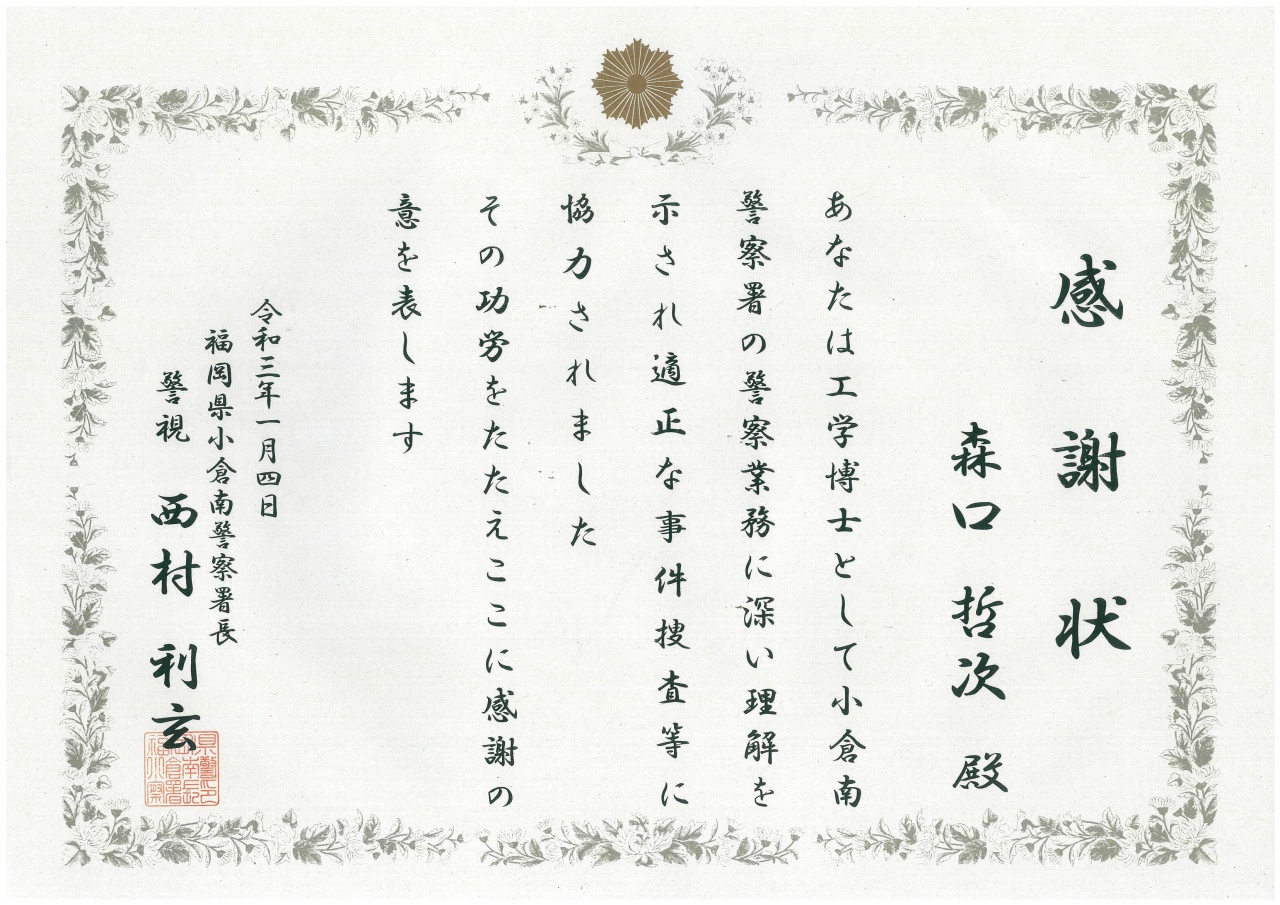 感謝状
森口 哲次 殿
あなたは工学博士として小倉南
警察署の警察業務に深い理解を
示され適正な事件捜査等に
協力されました
その功労をたたえここに感謝の
意を表します
令和三年一月四日
福岡県小倉南警察署長
警視 西村 利玄